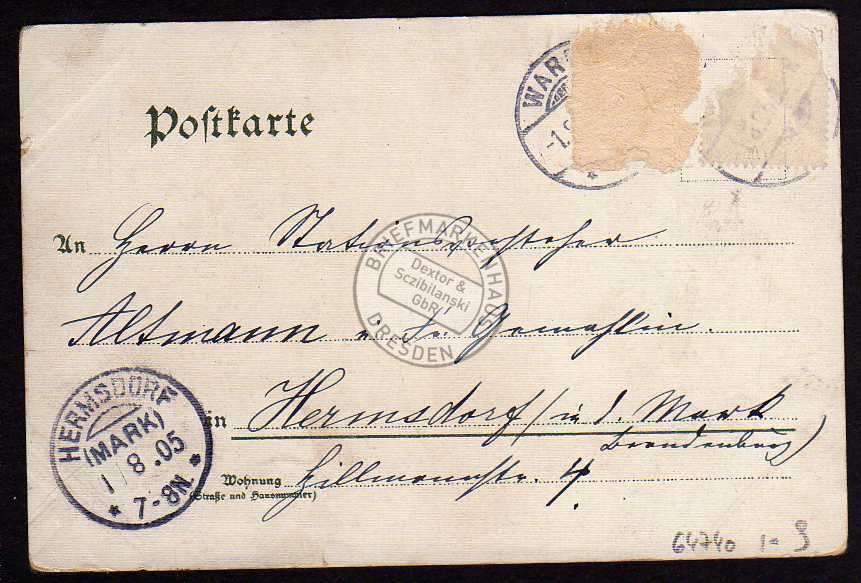 Postkarte
WAR
-1.
An Herrn Stationsvorsteher
Altmann u. Fr. Gemahlin.
in Hermsdorf / i. d. Mark
Brandenburg)
Wohnung
(Straße und Hausnummer)
4
HERMSDORF
(MARK)
1 8.05
* 7-8N. *
BRIEFMARKENHAUS
Dextor &
Sczibilanski
GbR
DRESDEN
64740 1-